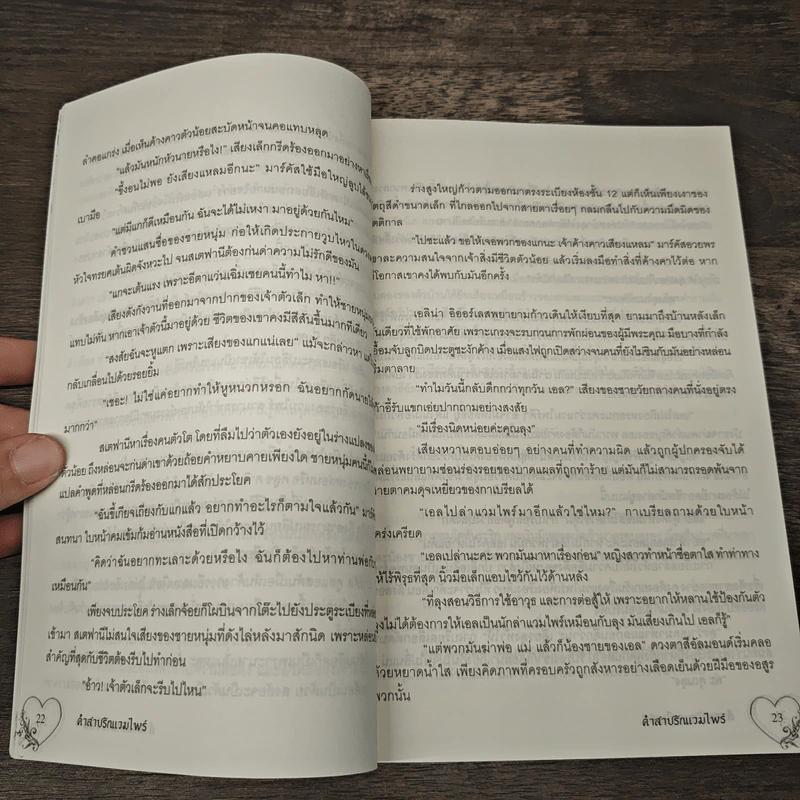 ลำคอแกร่ง เมื่อเห็นค้างคาวตัวน้อยสะบัดหน้าจนคอแทบหลุด
"แล้วมันหนักหัวนายหรือไง!" เสียงเล็กกรีดร้องออกมาอย่าง
"ซึ้งอนไม่พอ ยังเสียงแหลมอีกนะ" มาร์คัสใช้มือใหญ่ลูบใต้
เบามือ
"แต่มีแกก็ดีเหมือนกัน ฉันจะได้ไม่เหงา มาอยู่ด้วยกันไหม"
คำชวนแสนซื่อของชายหนุ่ม ก่อให้เกิดประกายวูบไหวใน
หัวใจทรยศเต้นผิดจังหวะไป จนสเตฟานีต้องก่นด่าความไม่รักดีของมัน
"แกจะเต้นแรง เพราะอีตาแวนเฉิ่มเชยคนนี้ทำไม หา!!"
เสียงดังกังวานที่ออกมาจากปากของเจ้าตัวเล็ก ทำให้ชายหนุ่ม
แทบไม่ทัน หากเอาเจ้าตัวนี้มาอยู่ด้วย ชีวิตของเขาคงมีสีสันขึ้นมากทีเดียว
"สงสัยฉันจะหูแตก เพราะเสียงของแกแน่เลย" แม้จะกล่าวหา
กลับเกลื่อนไปด้วยรอยยิ้ม
"เชอะ! ไม่ใช่แค่อยากทำให้หูหนวกหรอก ฉันอยากกัดนาย
มากกว่า"
สเตฟานีหาเรื่องคนตัวโต โดยที่ลืมไปว่าตัวเองยังอยู่ในร่างแปลง
ตัวน้อย ถึงหล่อนจะก่นด่าเขาด้วยถ้อยคำหยาบคายเพียงใด ชายหนุ่มคนนี้
แปลคำพูดที่หล่อนกรีดร้องออกมาได้สักประโยค
"ฉันขี้เกียจเถียงกับแกแล้ว อยากทำอะไรก็ตามใจแล้วกัน"
สนทนา ใบหน้าคมเข้มก้มอ่านหนังสือที่เปิดกว้างไว้
"คิดว่าฉันอยากทะเลาะด้วยหรือไง ฉันก็ต้องไปหาท่านพ่อ
เหมือนกัน"
เพียงจบประโยค ร่างเล็กจ้อยก็โผบินจากโต๊ะไปยังประตูระเบียงที่
เข้ามา สเตฟานีไม่สนใจเสียงของชายหนุ่มที่ดังไล่หลังมาสักนิด เพราะหล่อน
สำคัญที่สุดกับชีวิตต้องรีบไปทำก่อน
"อ้าว! เจ้าตัวเล็กจะรีบไปไหน"
22
คำสาปรักแวมไพร์
ร่างสูงใหญ่ก้าวตามออกมาตรงระเบียงห้องชั้น 12 แต่ก็เห็นเพียงเงาของ
วัตถุสีดำขนาดเล็ก ที่ไกลออกไปจากสายตาเรื่อยๆ กลมกลืนไปกับความมืดมิดของ
รัตติกาล
"ไปซะแล้ว ขอให้เจอพวกของแกนะ เจ้าค้างคาวเสียงแหลม" มาร์คัสอวยพร
เขาละความสนใจจากเจ้าสิ่งมีชีวิตตัวน้อย แล้วเริ่มลงมือทำสิ่งที่ค้างคาไว้ต่อ หาก
มีโอกาสเขาคงได้พบกับมันอีกครั้ง
เอลิน่า อิออร์เลสพยายามก้าวเดินให้เงียบที่สุด ยามมาถึงบ้านหลังเล็ก
อันเดียวที่ใช้พักอาศัย เพราะเกรงจะรบกวนการพักผ่อนของผู้มีพระคุณ มือบางที่กำลัง
เอื้อมจับลูกบิดประตูชะงักค้าง เมื่อแสงไฟถูกเปิดสว่างจนคนที่ยังไม่ชินกับมันอย่างหล่อน
ริมตาลาย
"ทำไมวันนี้กลับดึกกว่าทุกวัน เอล?" เสียงของชายวัยกลางคนที่นั่งอยู่ตรง
เก้าอี้รับแขกเอ่ยปากถามอย่างสงสัย
"มีเรื่องนิดหน่อยค่ะคุณลุง"
เสียงหวานตอบอ่อยๆ อย่างคนที่ทำความผิด แล้วถูกผู้ปกครองจับได้
หล่อนพยายามซ่อนร่องรอยของบาดแผลที่ถูกทำร้าย แต่มันก็ไม่สามารถรอดพ้นจาก
สายตาคมดุจเหยี่ยวของกาเบรียลได้
"เอลไปล่าแวมไพร์มาอีกแล้วใช่ไหม?" กาเบรียลถามด้วยใบหน้า
เคร่งเครียด
"เอลเปล่านะคะ พวกมันมาหาเรื่องก่อน" หญิงสาวทำหน้าซื่อตาใส ทำท่าทาง
ให้ไร้พิรุธที่สุด นิ้วมือเล็กแอบไขว้กันไว้ด้านหลัง
"ที่ลุงสอนวิธีการใช้อาวุธ และการต่อสู้ให้ เพราะอยากให้หลานใช้ป้องกันตัว
ลุงไม่ได้ต้องการให้เอลเป็นนักล่าแวมไพร์เหมือนกับลุง มันเสี่ยงเกินไป เอลก็รู้"
"แต่พวกมันฆ่าพ่อ แม่ แล้วก็น้องชายของเอล" ดวงตาสีอัลมอนด์เริ่มคลอ
ด้วยหยาดน้ำใส เพียงคิดภาพที่ครอบครัวถูกสังหารอย่างเลือดเย็นด้วยฝีมือของอสูร
พวกนั้น
คำสาปรักแวมไพร์
23